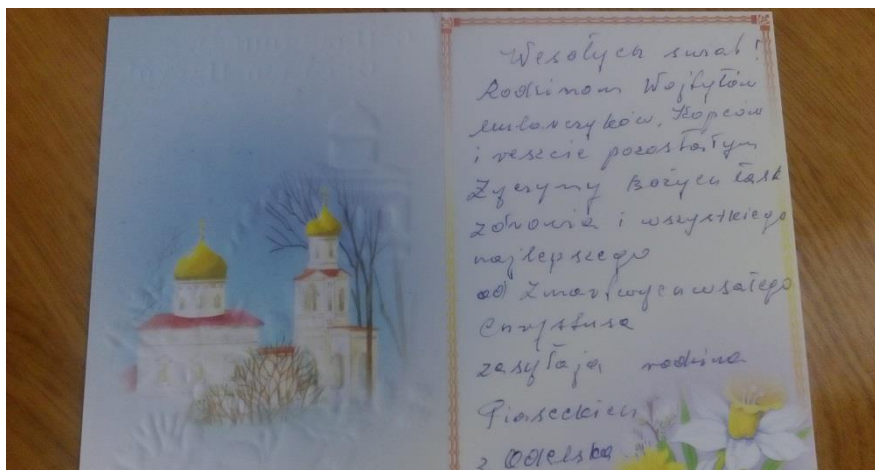 Wesołych swiat!
Rodzinom Wojtyłów
Kopców
i reszcie pozostałym
Życzymy Bożych łask
zdrowia i wszystkiego
najlepszego
od Zmartwychwsałego
Chrystusa
zasyłają rodzina
Piaseckich
z Odelska